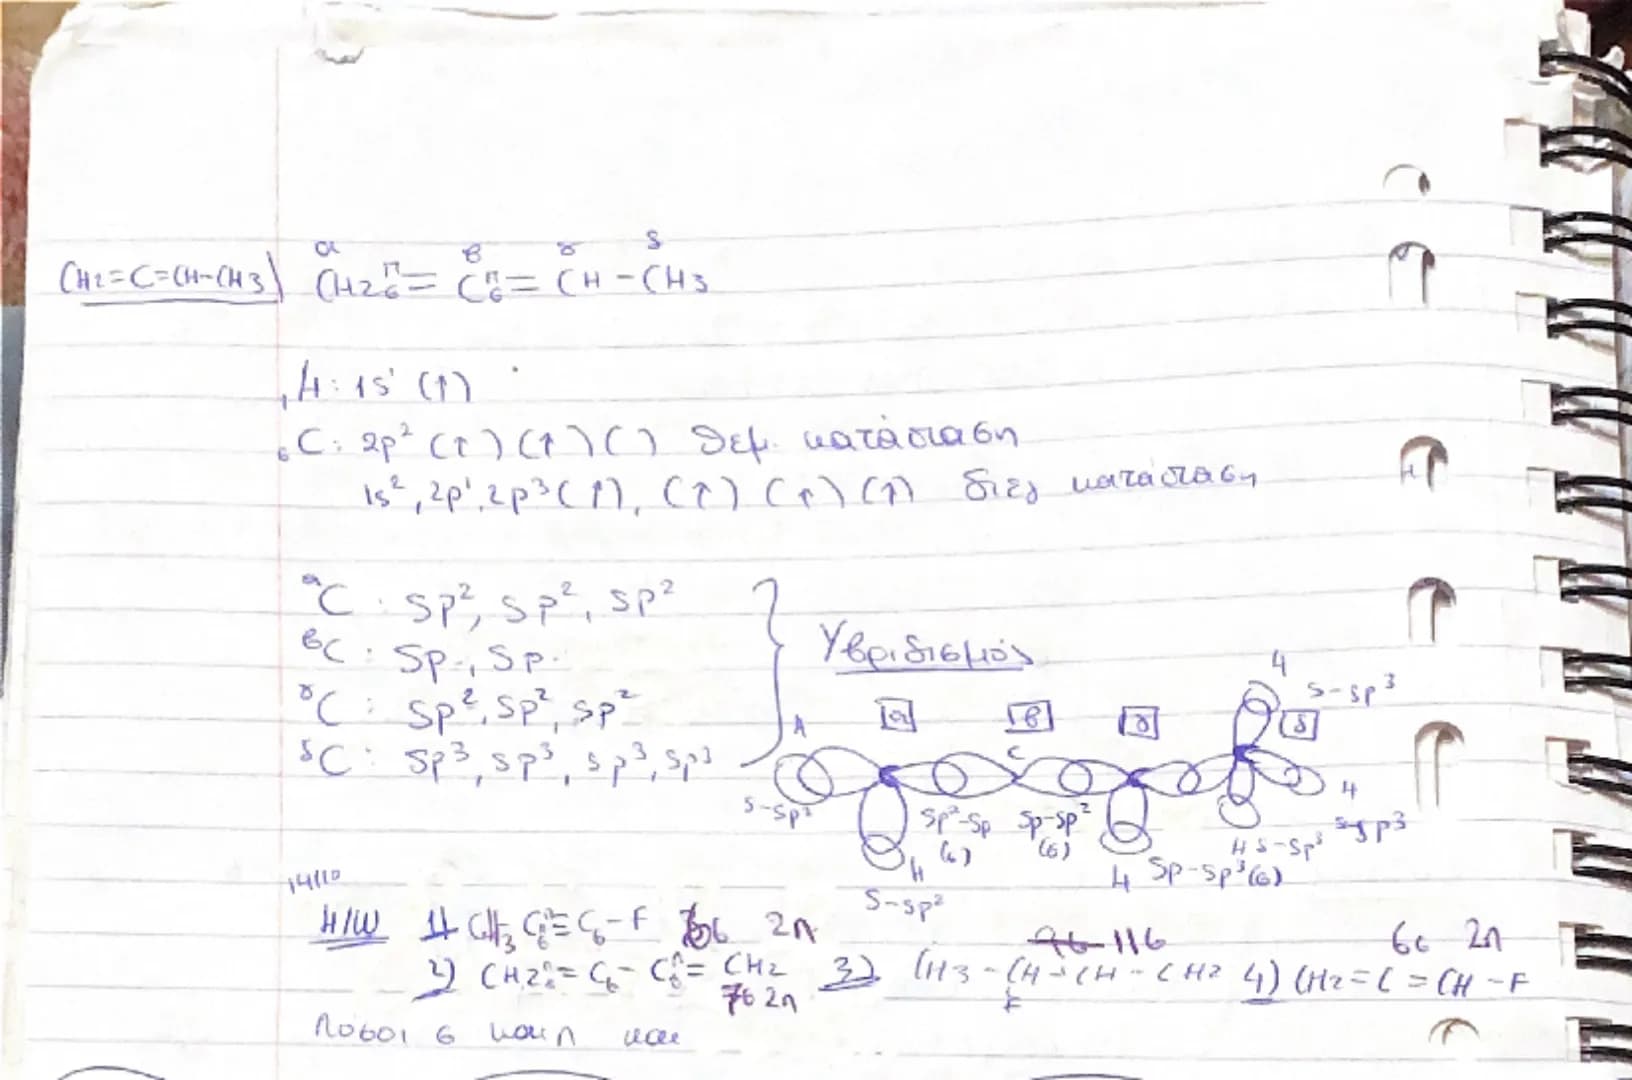 CH2=C=CH-CH3) CH2 σ π = C σ π = CH - CH3
α β γ δ
1H: 1s¹ (↑)
6C: 2p² (↑)(↑)( ) θεμ. κατάσταση
1s², 2p¹, 2p³ (↑), (↑)(↑)(↑) διεγ κατάσταση
αC: sp², sp², sp²
βC: sp, sp.
γC: sp², sp², sp²
δC: sp³, sp³, sp³, sp³
Υβριδισμός
α β γ δ
H s-sp³
A C
s-sp² sp²-sp (σ) sp-sp² (σ) H s-sp³ H s-sp3
H s-sp² H sp-sp³(σ)
14/10
H/W 1) CH3 C≡C-F 7σ 2π
11σ 6σ 2π
2) CH2=C-C=CH2 3) CH3-CH-CH-CH2 4) CH2=C=CH-F
7σ 2π F
Πόσοι σ και π